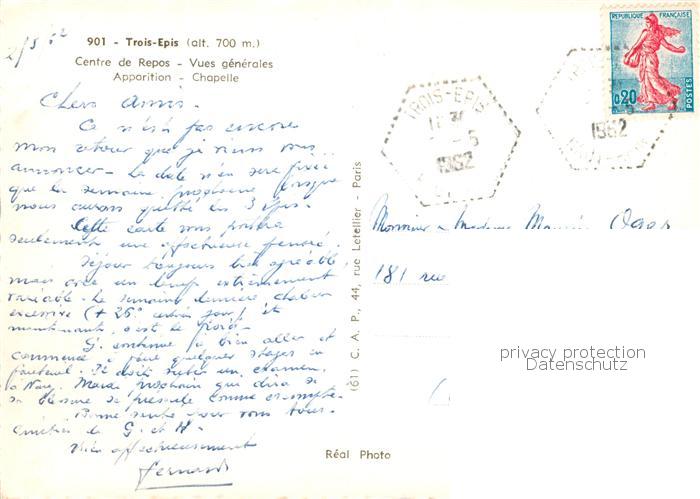 2/5 62
901 - Trois-Epis (alt. 700 m.)
Centre de Repos - Vues générales
Apparition - Chapelle
Chers amis.
Ce n'est pas encore
mon retour que je viens vous
annoncer. La date n'en sera fixée
que la semaine prochaine lorsque
nous aurons quitté les 3 Epis.
Cette carte vous portera
seulement une affectueuse pensée.
Séjour toujours bien agréable
mais avec un temps extrêmement
variable. La semaine dernière, chaleur
excessive (+ 25° certains jours) et
maintenant, c'est le froid.
G. continue à bien aller et
commence à faire quelques stages en
fauteuil. Il doit subir un examen
à Nancy Mardi prochain qui dira si
sa blessure se présente comme
Bonne santé pour vous tous.
amitiés de G. et M.
Bien affectueusement
Fernand
(61) C. A. P., 44, rue Letellier - Paris
Réal Photo
REPUBLIQUE FRANÇAISE
0,20
POSTES
TROIS-EPIS
1962
1962
Monsieur & Madame Maurice
181 rue
privacy protection
Datenschutz